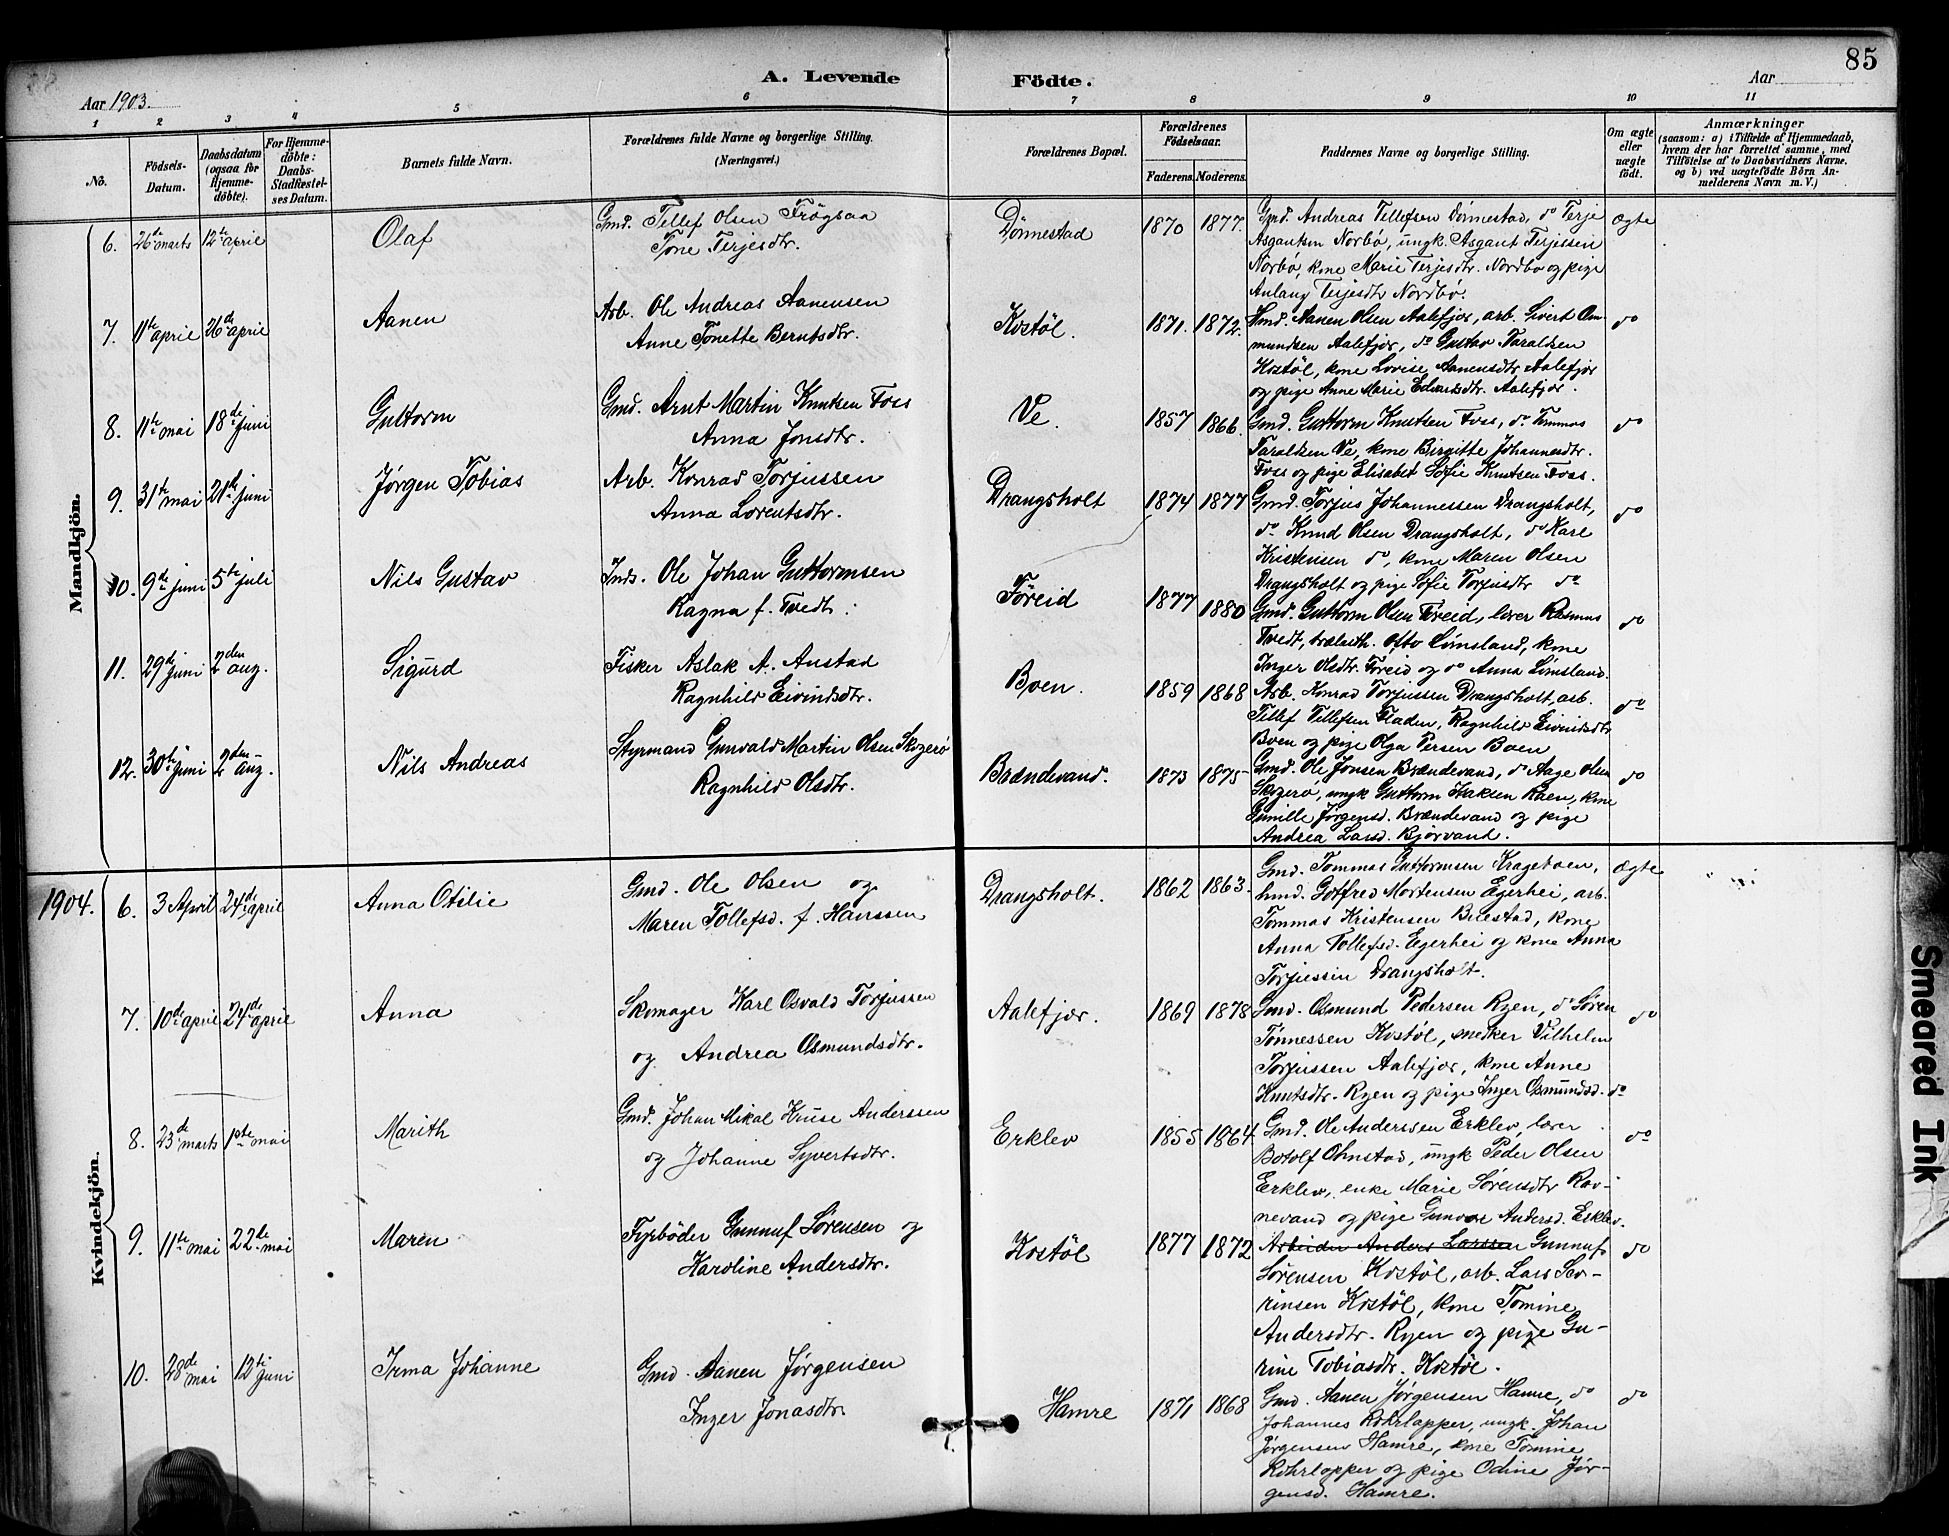 85
A. Levende Födte.
Aar 1903.
Aar
1 2 3 4 5 6 7 8 9 10 11
No.
Födsels-Datum.
Daabsdatum (ogsaa for Hjemme-döbte).
For Hjemme-döbte: Daabs-Stadfæstel-ses Datum.
Barnets fulde Navn.
Forældrenes fulde Navne og borgerlige Stilling.
(Næringsvei.)
Forældrenes Bopæl.
Forældrenes Födselsaar.
Faderens. Moderens.
Faddernes Navne og borgerlige Stilling.
Om ægte eller uægte födt.
Anmærkninger
(saasom: a) i Tilfælde af Hjemmedaab,
hvem der har forrettet samme, med
Tilföielse af to Daabsvidners Navne.
og b) ved uægtefödte Börn An-
melderens Navn m. V.)
Mandkjön.
6. 26de marts 12te april Olaf Gmd. Tellef Olsen Frøgsaa
Tone Terjesdtr. Dønnestad 1870 1877. Gmd. Andreas Tellefsen Dønnestad, do Terje ægte
Asgautsen Norbø, ungk. Asgaut Terjessen
Norbø, kone Marie Terjesdtr. Nordbø og pige
Anlaug Terjesdtr Nordbø.
7. 11te april 26de april Aanen Arb. Ole Andreas Aanensen
Anne Tonette Berntsdtr. Kostöl. 1871. 1872. Hmd. Aanen Olsen Aalefjær, arb. Sivert Om- do
mundsen Aalefjær, do Gustav Taraldsen
Kostöl, kone Lovise Aanensdtr Aalefjær
og pige Anne Marie Edvardsdtr. Aalefjær.
8. 11te mai 18de juni Guttorm Gmd. Arnt Martin Knutsen Foss
Anna Jonsdtr. Ve. 1857 1866. Gmd. Guttorm Knutsen Foss, do Tommas do
Taraldsen Ve, kone Birgitte Johannesdtr.
Foss og pige Elisabet Sofie Knutsen Foss.
9. 31te mai 21de juni Jørgen Tobias Arb. Konrad Torjussen
Anna Lorentsdtr. Drangsholt 1874 1877 Gmd. Torjus Johannessen Drangsholt, do
do Knud Olsen Drangsholt, do Karl
Kristensen do, kone Maren Olsen
Drangsholt og pige Sofie Torjusdtr do
10. 9de juni 5te juli Nils Gustav Inds. Ole Johan Guttormsen
Ragna f. Tvedt. Føreid 1877 1880 Gmd. Guttorm Olsen Føreid, lærer Rasmus do
Tvedt, Otto Lømsland, kone
Inger Olsdtr. Føreid og do Anna Lømsland.
11. 29de juni 2den aug. Sigurd Fisker Aslak A. Austad
Ragnhild Eivindsdtr. Boen. 1859 1868 Arb. Konrad Torjussen Drangsholt, arb. do
Tellef Tellefsen Fladen, Ragnhild Eivindsdtr
Boen og pige Olga Persen Boen
12. 30te juni 2den aug. Nils Andreas Styrmand Gunvald Martin Olsen Skogerø
Ragnhild Olsdtr. Brændevand. 1873 1875 Gmd. Ole Jonsen Brændevand, do Aage Olsen do
Skogerø, ungk Guttorm Isaksen Raen, kone
Gunille Jørgensd. Brændevand og pige
Andrea Larsd. Bjørvand.
1904.
Kvindekjön.
6. 3 April 24de april Anna Otilie Gmd. Ole Olsen og
Maren Tollefsd. f. Hanssen Drangsholt. 1862 1863. Gmd. Tommas Guttormsen Krageboen, ægte
hmd. Gotfred Mortensen Egerhei, arb.
Tommas Kristensen Buestad, kone
Anna Tollefsd. Egerhei og kone Anna
Torjussen Drangsholt.
7. 10de april 24de april Anna Skomager Karl Osvald Torjussen
og Andrea Osmundsdtr. Aalefjær. 1869 1878 Gmd. Osmund Pedersen Ryen, do Søren do
Tønnessen Kostöl, snedker Vilhelm
Torjussen Aalefjær, kone Anne
Knutsdtr. Ryen og pige Inger Osmundsd. do
8. 23de marts 1ste mai Marith Gmd. Johan Mikal Kruse Anderssen
og Johanne Syvertsdtr. Erklev 1855 1864. Gmd. Ole Anderssen Erklev, lærer do
Botolf Omstad, ungk Peder Olsen
Erklev, enke Marie Sørensdtr Rav-
nevand og pige Gunvor Andersd. Erklev.
9. 11te mai 22de mai Maren Fyrbøder Gunnuf Sørensen og
Karoline Andersdtr. Kostöl 1877 1872 Arbeider Anders Larssen Gunnuf do
Sørensen Kostöl, arb. Lars Sev-
rinsen Kostöl, kone Tomine
Andersdtr. Ryen og pige Gu-
rine Tobiasdtr. Kostöl.
10. 28de mai 12te juni Irma Johanne Gmd. Aanen Jørgensen
Inger Jonasdtr. Hamre 1871 1868 Gmd. Aanen Jørgensen Hamre, do do
Johannes Rohrlapper, ungk. Johan
Jørgensen Hamre, kone Tomine
Rohrlapper og pige Odine Jør-
gensd. Hamre.
Smeared Ink